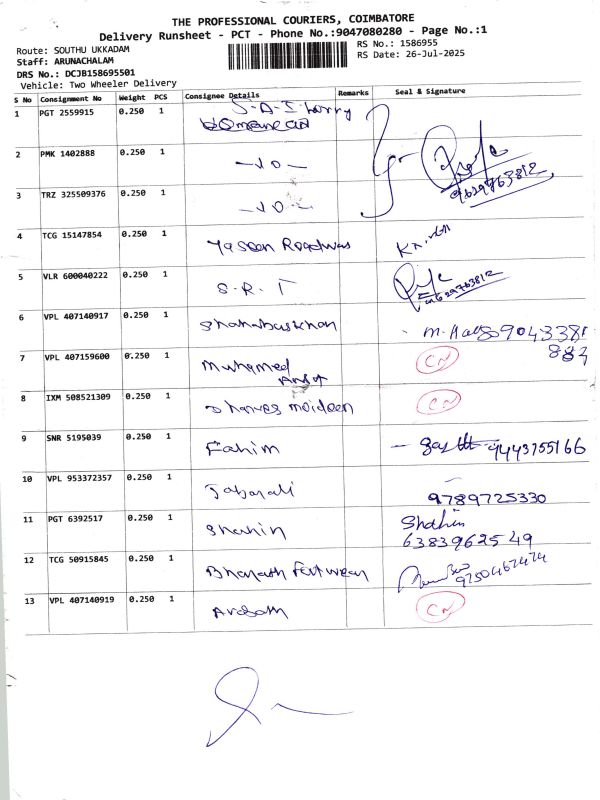 THE PROFESSIONAL COURIERS, COIMBATORE
Delivery Runsheet - PCT - Phone No.:9047080280 - Page No.:1
Route: SOUTHU UKKADAM
RS No.: 1586955
Staff: ARUNACHALAM
RS Date: 26-Jul-2025
DRS No.: DCJB158695501
Vehicle: Two Wheeler Delivery
S No Consignment No Weight PCS Consignee Details Remarks Seal & Signature
1 PGT 2559915 0.250 1
2 PMK 1402888 0.250 1
9629763812
3 TRZ 325509376 0.250 1
4 TCG 15147854 0.250 1 Yaseen Roadways
5 VLR 600040222 0.250 1 S.R.T 9629763812
6 VPL 407140917 0.250 1 Shahabuskhan
7 VPL 407159600 0.250 1 Muhamed CN
8 IXM 508521309 0.250 1 moideen CN
9 SNR 5195039 0.250 1 Fahim 9443755166
10 VPL 953372357 0.250 1 Jabarali 9789725330
11 PGT 6392517 0.250 1 Shahin Shahin
6383962549
12 TCG 50915845 0.250 1 Bharath Footwear
13 VPL 407140919 0.250 1 CN